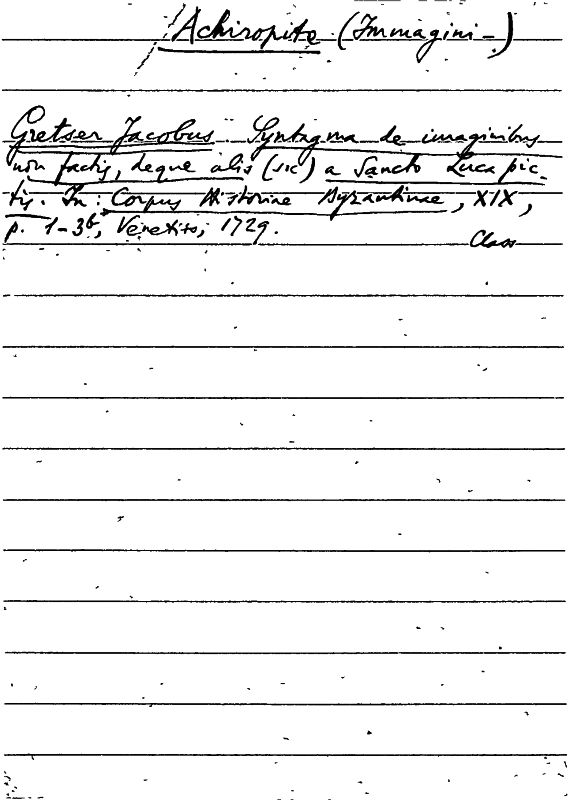 Achiropite (Immagini-)
Gretser Jacobus. Syntagma de imaginibus
non factis, deque alis (sic) a Sancto Luca pic-
tis. In: Corpus Historiae Byzantinae, XIX,
p. 1-36, Venetiis, 1729.
Class